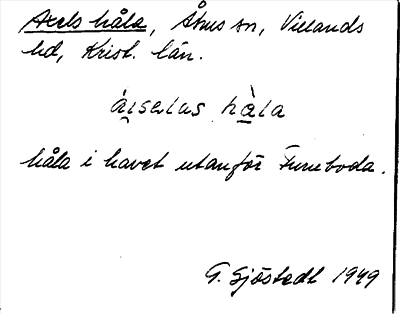 Axels håla, Åhus sn, Villands
hd, Krist. län.
håla
håla i havet utanför Furuboda.
G. Sjöstedt 1949